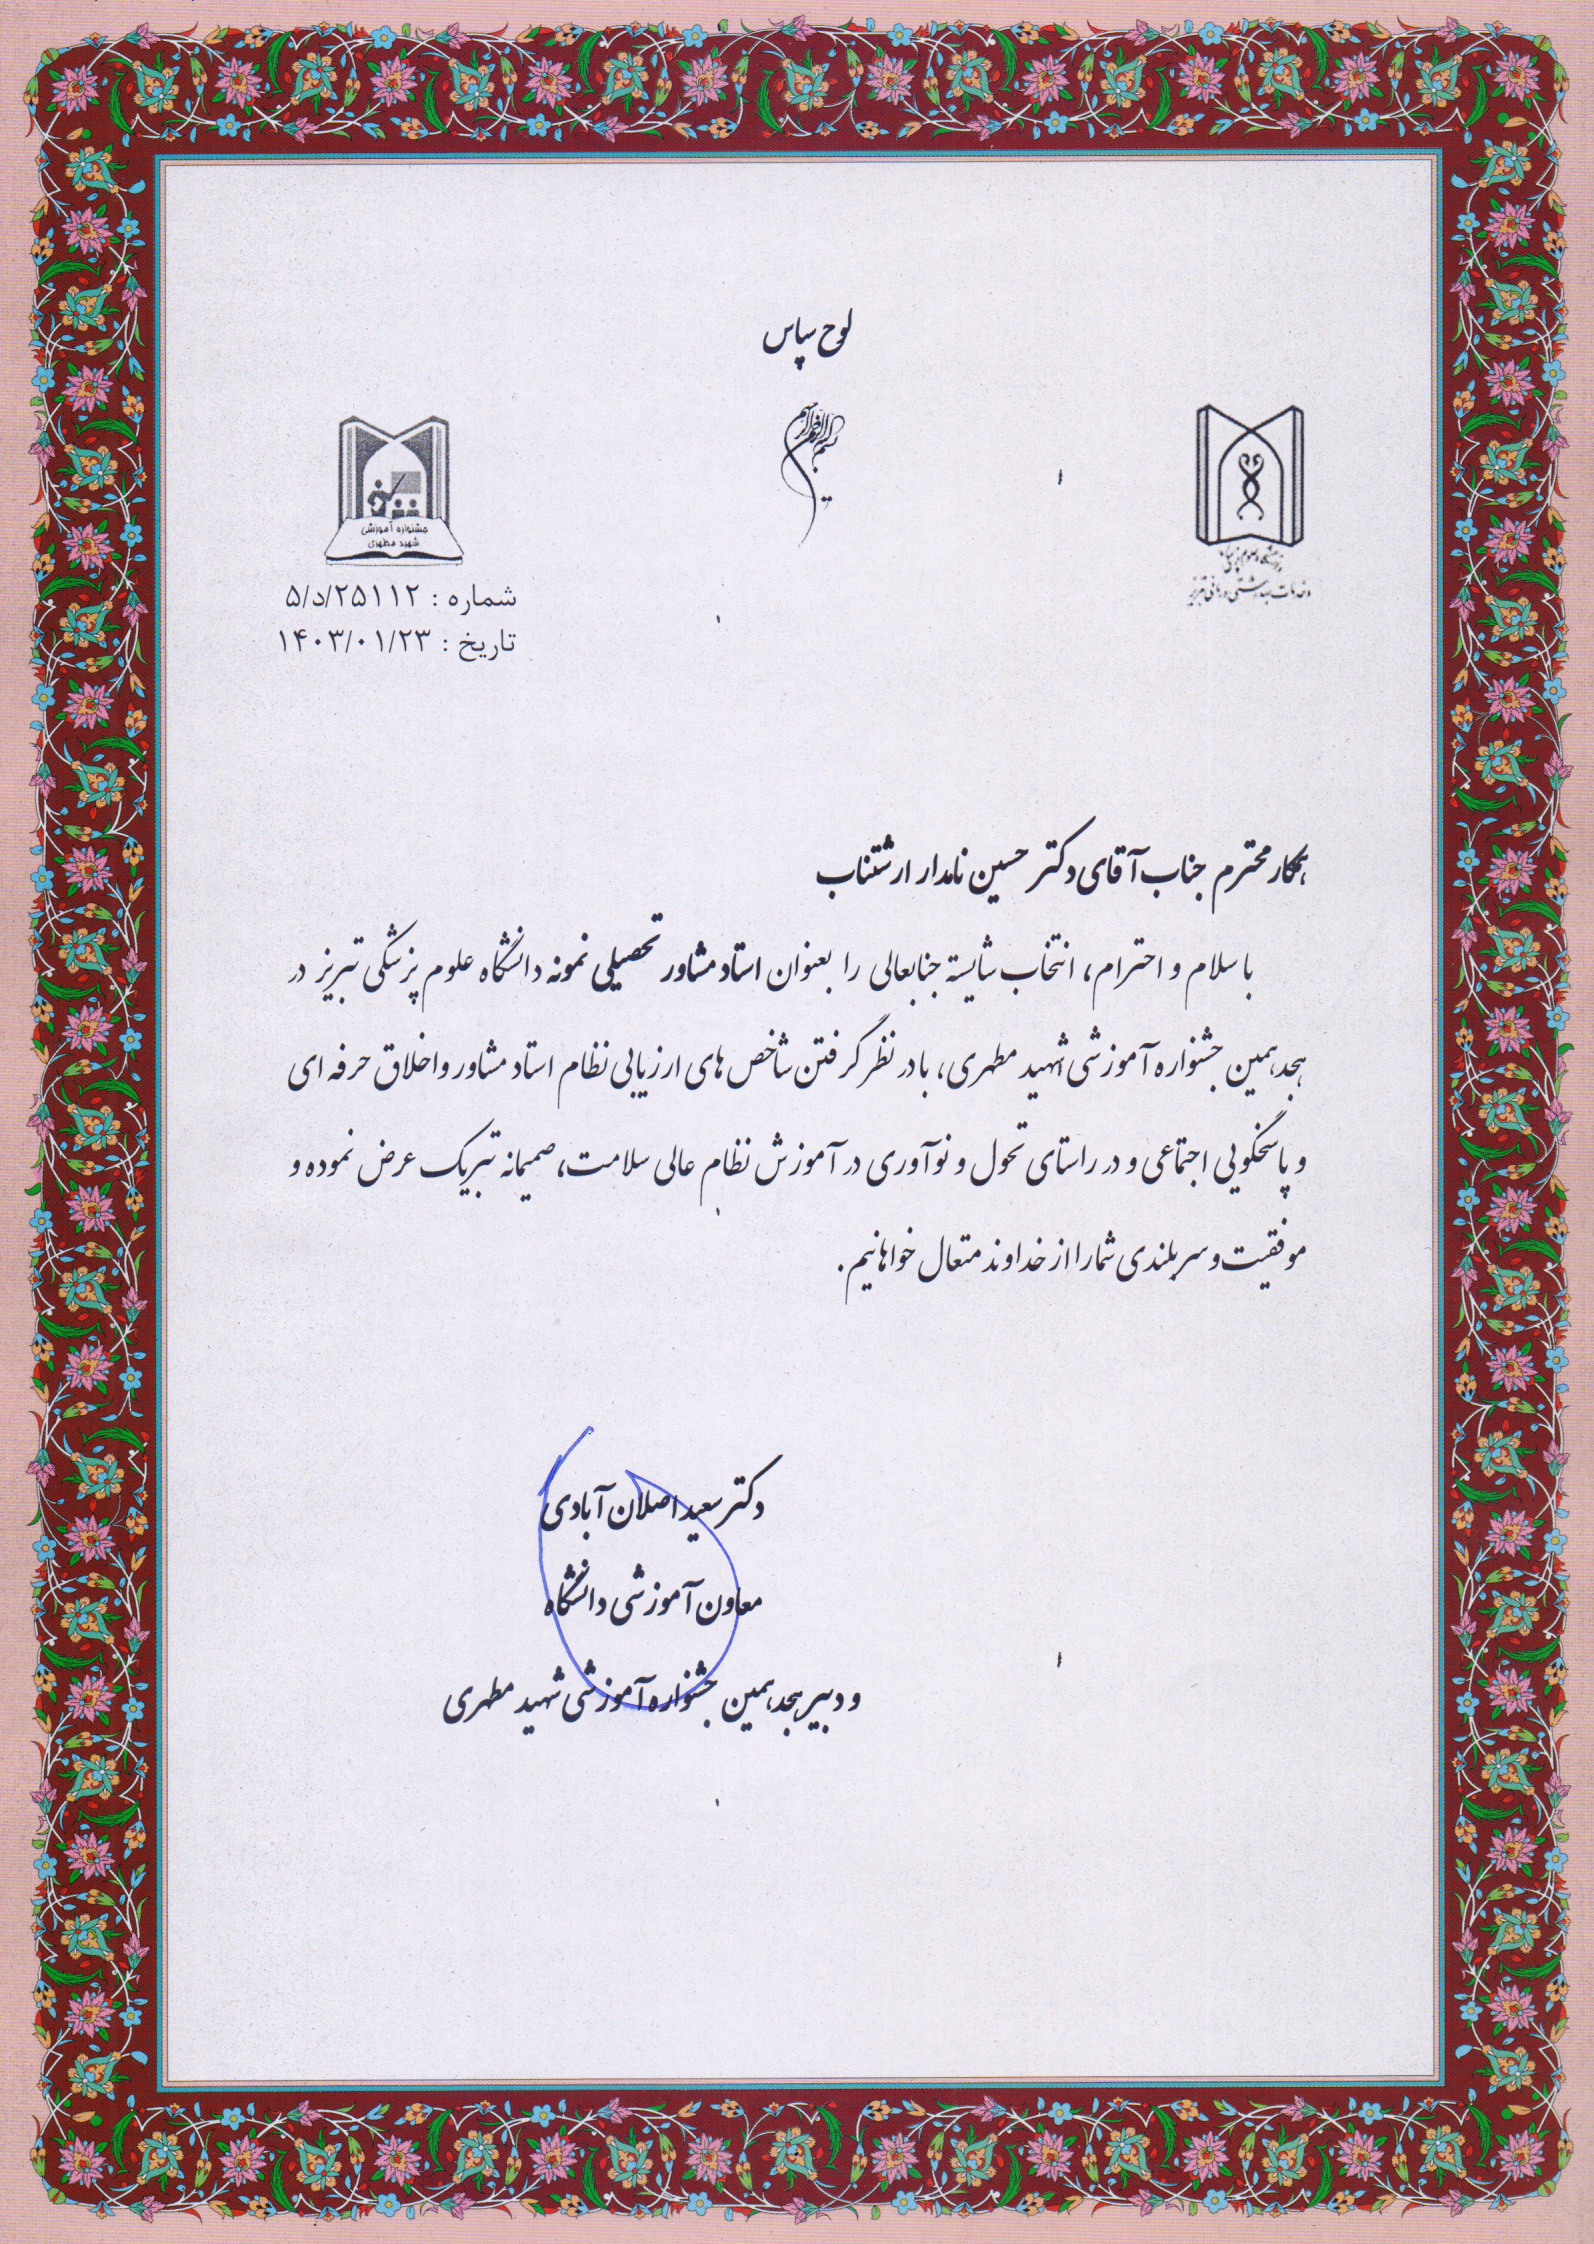 لوح سپاس
بسم الله الرحمن الرحیم
جشنواره آموزشی
شهید مطهری
دانشگاه علوم پزشکی
و خدمات بهداشتی درمانی تبریز
شماره : ۵/د/۲۵۱۱۲
تاریخ : ۱۴۰۳/۰۱/۲۳
همکار محترم جناب آقای دکتر حسین نامدار ارشتناب
با سلام و احترام، انتخاب شایسته جنابعالی را بعنوان استاد مشاور تحصیلی نمونه دانشگاه علوم پزشکی تبریز در
هجدهمین جشنواره آموزشی شهید مطهری، با در نظر گرفتن شاخص های ارزیابی نظام استاد مشاور و اخلاق حرفه ای
و پاسخگویی اجتماعی و در راستای تحول و نوآوری در آموزش نظام عالی سلامت، صمیمانه تبریک عرض نموده و
موفقیت و سربلندی شما را از خداوند متعال خواهانیم.
دکتر سعید اصلان آبادی
معاون آموزشی دانشگاه
و دبیر هجدهمین جشنواره آموزشی شهید مطهری